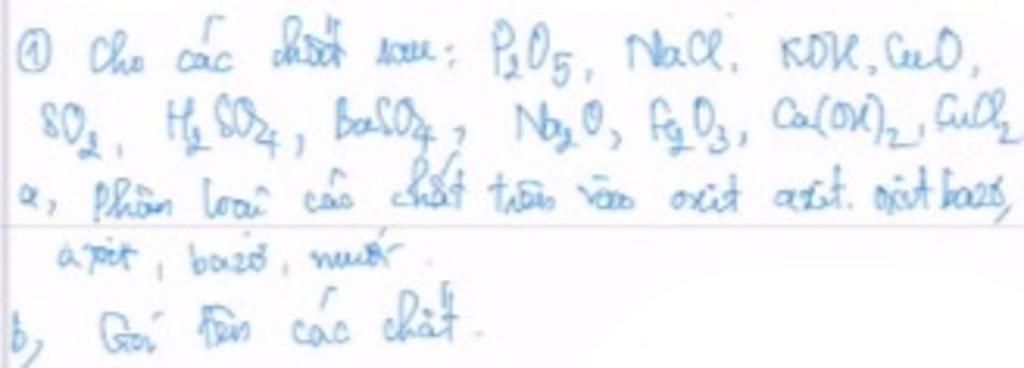 ① Cho các chất sau: P₂O₅, NaCl, KOH, CuO,
SO₂, H₂SO₄, BaSO₄, Na₂O, Fe₂O₃, Ca(OH)₂, CuCl₂
a, Phân loại các chất trên vào oxit axit, oxit bazơ,
axit, bazơ, muối.
b, Gọi tên các chất.